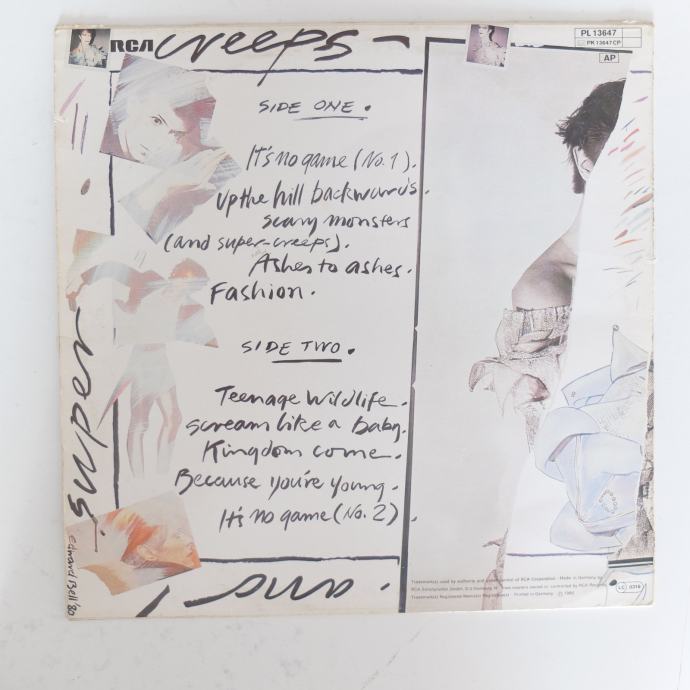 RCA creeps -
PL 13647
PK 13647 CP
AP
SIDE ONE.
It's no game (No. 1).
Up the hill backwards.
scary monsters
(and super-creeps).
Ashes to ashes.
Fashion.
SIDE TWO.
Teenage Wildlife.
scream like a baby.
Kingdom come.
Because you're young.
It's no game (No. 2).
super
and
edward Bell '80
Trademark(s) used by authority and under control of RCA Corporation · Made in Germany by
RCA Schallplatten GmbH,
Trademark(s) Registered Marca(s) Registrada(s) · Printed in Germany · ℗ 1980
LC 0316